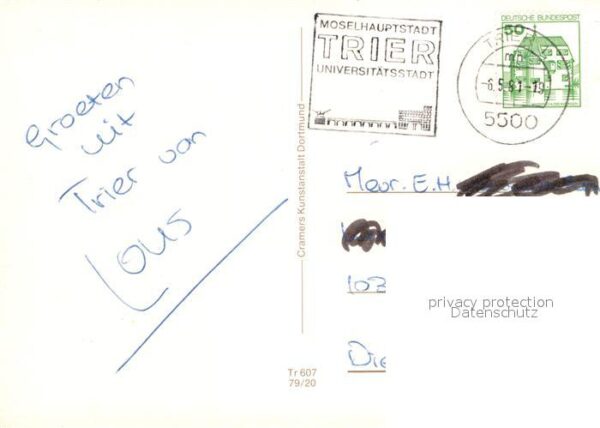 Groeten
uit
Trier van
Lous
Cramers Kunstanstalt Dortmund
Tr 607
79/20
MOSELHAUPTSTADT
TRIER
UNIVERSITÄTSSTADT
DEUTSCHE BUNDESPOST
50
TRIER
mb
-6.5.81-19
5500
Mevr. E.H.
102
Die
privacy protection
Datenschutz